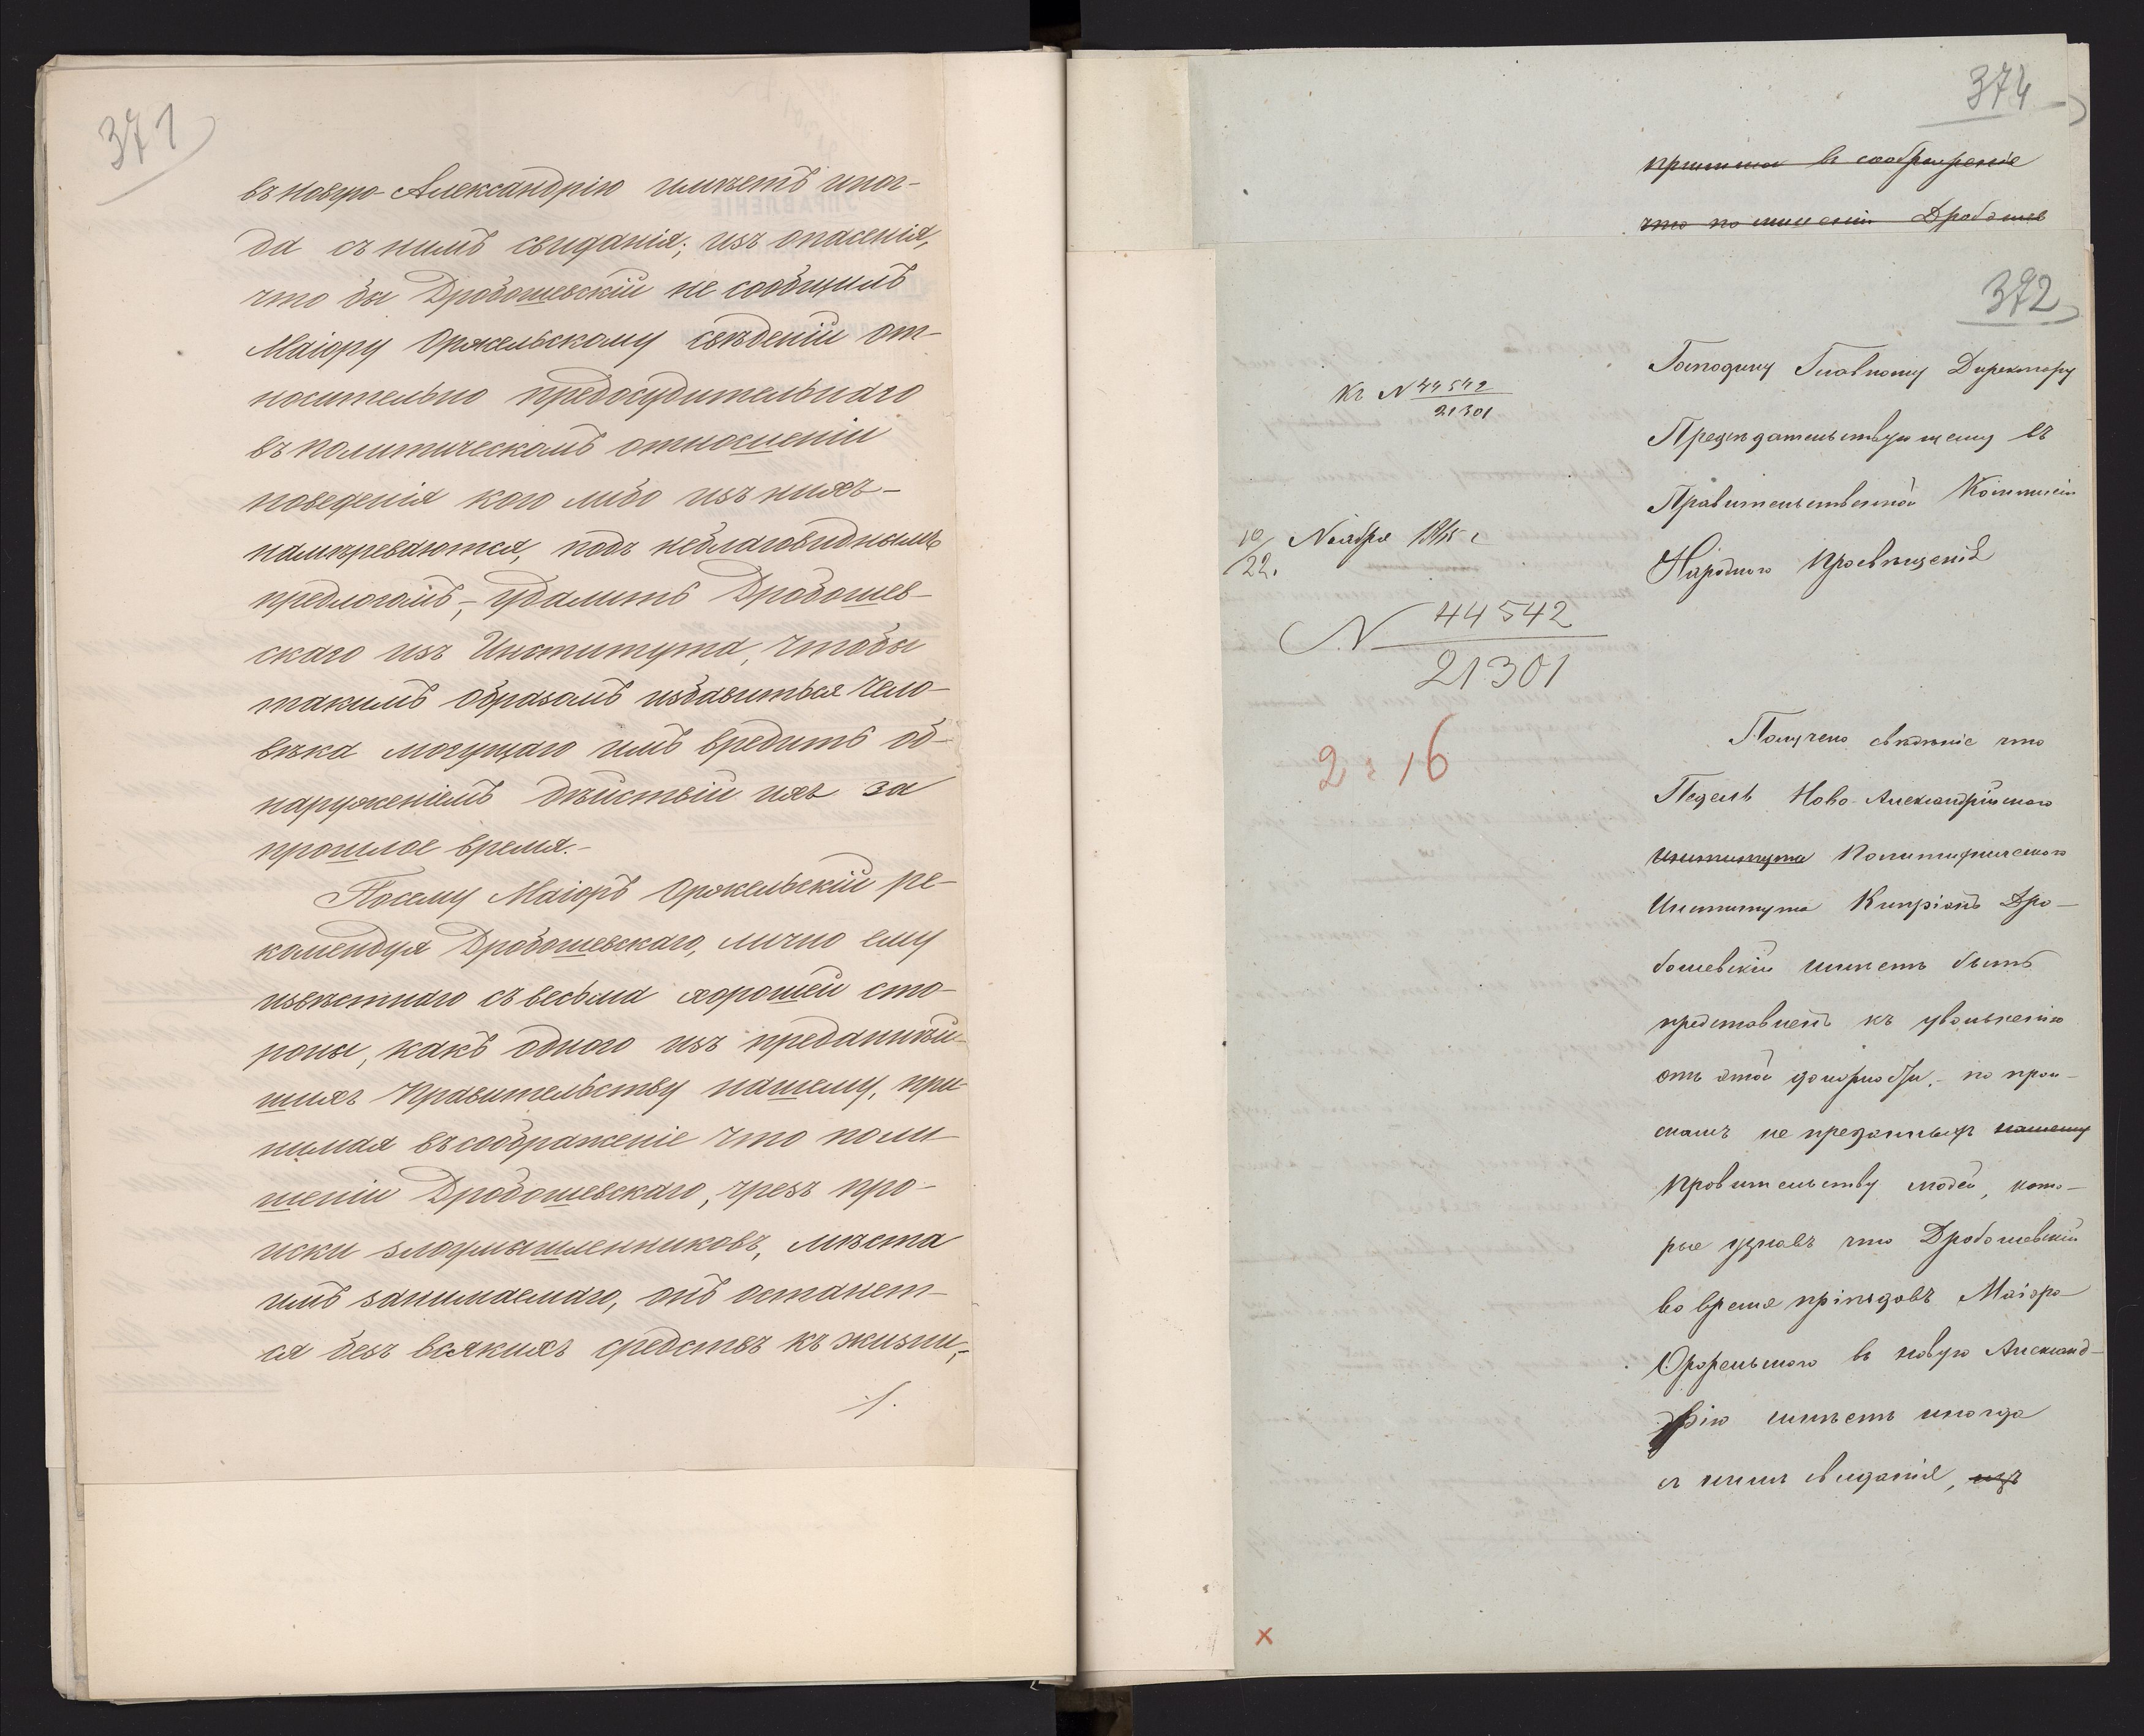 371
въ Новую Александрію имѣетъ иног-
да съ нимъ свиданія; изъ опасенія,
что бы Дробошевскій не сообщилъ
Маіору Оржельскому свѣденій от-
носительно предосудительнаго
въ политическомъ отношеніи
поведенія кого либо изъ нихъ –
намѣреваются, подъ неблаговиднымъ
предлогомъ, – удалить Дробошев-
скаго изъ Института, чтобы
такимъ образомъ избавиться чело-
вѣка могущаго имъ вредить об-
наруженіемъ дѣйствій ихъ за
прошлое время. –
Посему Маіоръ Оржельскій ре-
комендуя Дробошевскаго, лично ему
извѣстнаго съ весьма хорошей сто-
роны, какъ одного изъ преданнѣй-
шихъ Правительству нашему, при-
нимая въ соображеніе что по ли-
шеніи Дробошевскаго, чрезъ про-
иски злоумышленниковъ, мѣста
имъ занимаемаго, онъ останет-
ся безъ всякихъ средствъ къ жизни, –
./.
374
принимая въ соображеніе
что по лишеніи Дробошев
372
Господину Главному Директору
Предсѣдательствующему въ
Правительственной Коммисіи
Народнаго Просвѣщенія
Къ N 44542
21301
10/22. Ноября 1845 г
N 44542
21301
2 : 16
Получено свѣденіе что
Педель Ново-Александрійскаго
Института Политехническаго
Института Кипріанъ Дро-
бошевскій имѣетъ быть
представленъ къ увольненію
отъ этой должности, – по прои-
скамъ не преданныхъ нашему
Правительству людей, кото-
рые узнавъ что Дробошевскій
во время пріѣздовъ Маіора
Оржельскаго въ Новую Александ-
рію имѣетъ иногда
съ нимъ свиданія, изъ
x